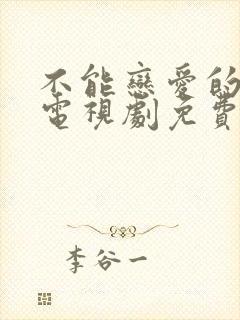 不能戀愛的
電視劇免費
李谷一